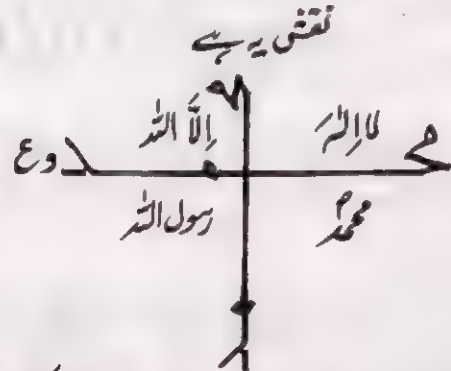 نقش یہ ہے
لا الٰہَ اِلَّا اللہ
محمدؐ رسول اللہ